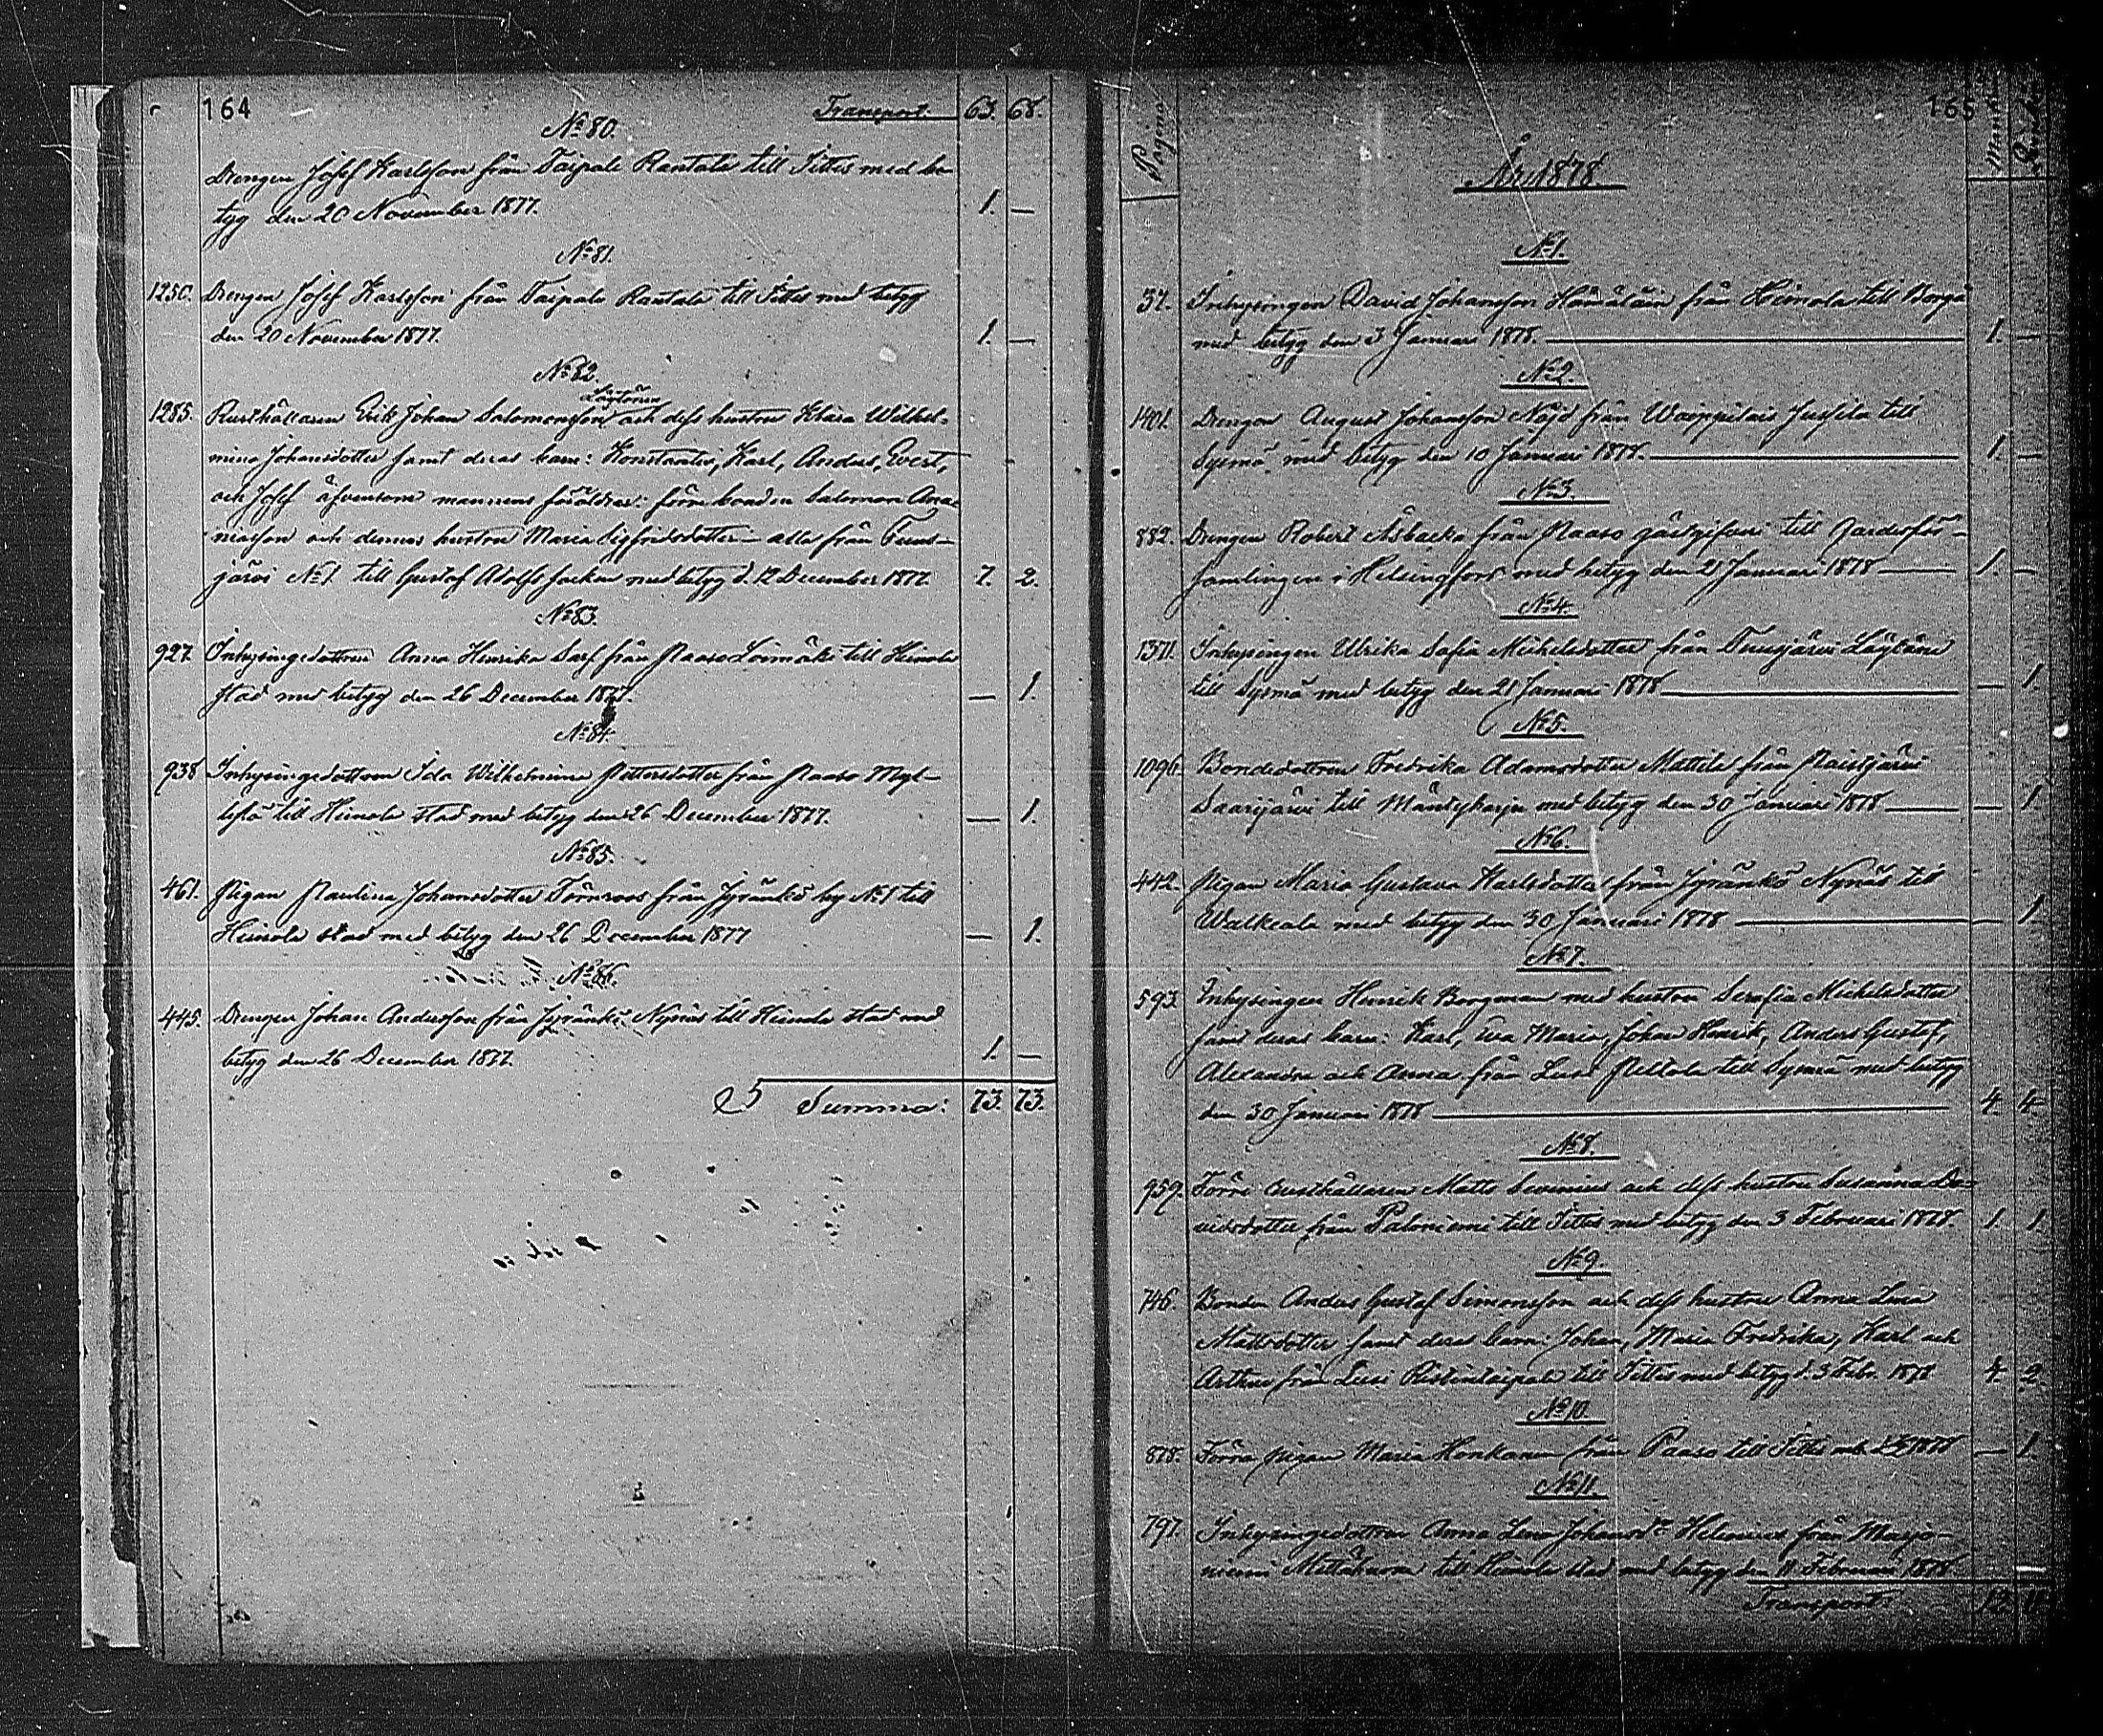 164 Transport. 63. 68.
No 80.
Drengen Josef Karlsson från Taipale Rantala till Jittis med be-
tyg den 20 November 1877. 1. —
No 81.
1250. Drengen Josef Karlsson från Taipale Rantala till Jittis med betyg
den 20 November 1877. 1. —
No 82.
Lögtönen
1285. Rusthållaren Erik Johan Salomonsson och dess hustru Klara Wilhel-
mina Johansdotter samt deras barn: Konstantin, Karl, Anders, Evert,
och Josef äfvensom mannens föräldrar: förre bonden Salomon Ana-
niasson och dennes hustru Maria Sigfridsdotter — alla från Tuus-
järvi No 1 till Gustaf Adolfs socken med betyg d. 12 December 1877. 7. 2.
No 83.
927. Inhysingedottren Anna Henrika Sarf från Paaso Loimäki till Heinola
stad med betyg den 26 December 1877. — 1.
No 84.
938 Inhysingedottren Ida Wilhelmina Pettersdotter från Paaso Myl-
lystö till Heinola stad med betyg den 26 December 1877. — 1.
No 85.
461. Pigan Paulina Johansdotter Törnroos från Jyränkö by No 1 till
Heinola stad med betyg den 26 December 1877 — 1.
No 86.
445. Drengen Johan Andersson från Jyränkö Nynäs till Heinola stad med
betyg den 26 December 1877. 1. —
Summa: 73. 73.
165
Pagina
År 1878.
No 1.
37. Inhysingen David Johansson Hämäläin från Heinola till Borgå
med betyg den 3 Januari 1878. 1. —
No 2.
1401. Drengen August Johansson Nöjd från Waippilais Jussila till
Sysmä med betyg den 10 Januari 1878. 1. —
No 3.
882. Drengen Robert Åsbacka från Paaso gästgifveri till Gardesför-
samlingen i Helsingfors med betyg den 21 Januari 1878 1. —
No 4.
1371. Inhysingen Ulrika Sofia Michelsdotter från Tuusjärvi Lögtöni
till Sysmä med betyg den 21 Januari 1878 — 1.
No 5.
1096. Bondedottren Fredrika Adamsdotter Mattila från Paistjärvi
Saarijärvi till Mäntyharju med betyg den 30 Januari 1878 — 1
No 6.
442. Pigan Maria Gustava Karlsdotter från Jyränkö Nynäs till
Walkeala med betyg den 30 Januari 1878 — 1
No 7.
593. Inhysingen Henrik Borgman med hustru Serafia Michelsdotter
samt deras barn: Karl, Eva Maria, Johan Henrik, Anders Gustaf,
Alexandra och Anna från Lusi Pellola till Sysmä med betyg
den 30 Januari 1878 4. 4.
No 8.
959. Förre rusthållaren Matts Sevenius och dess hustru Susanna Da-
vidsdotter från Paloniemi till Jittis med betyg den 3 Februari 1878. 1. 1.
No 9.
746. Bonden Anders Gustaf Simonsson och dess hustru Anna Lena
Mattsdotter samt deras barn: Johan, Maria Fredrika, Karl och
Arthur från Lusi Ristintaipale till Jittis med betyg d. 3 Febr. 1878 4. 2.
No 10.
878. Förra pigan Maria Honkanen från Paaso till Jittis 1878 — 1.
No 11.
797. Inhysingedottren Anna Lena Johansdr Helenius från Marjo-
niemi Mittåkorva till Heinola stad med betyg den 11 Februari 1878
Transport: 12.